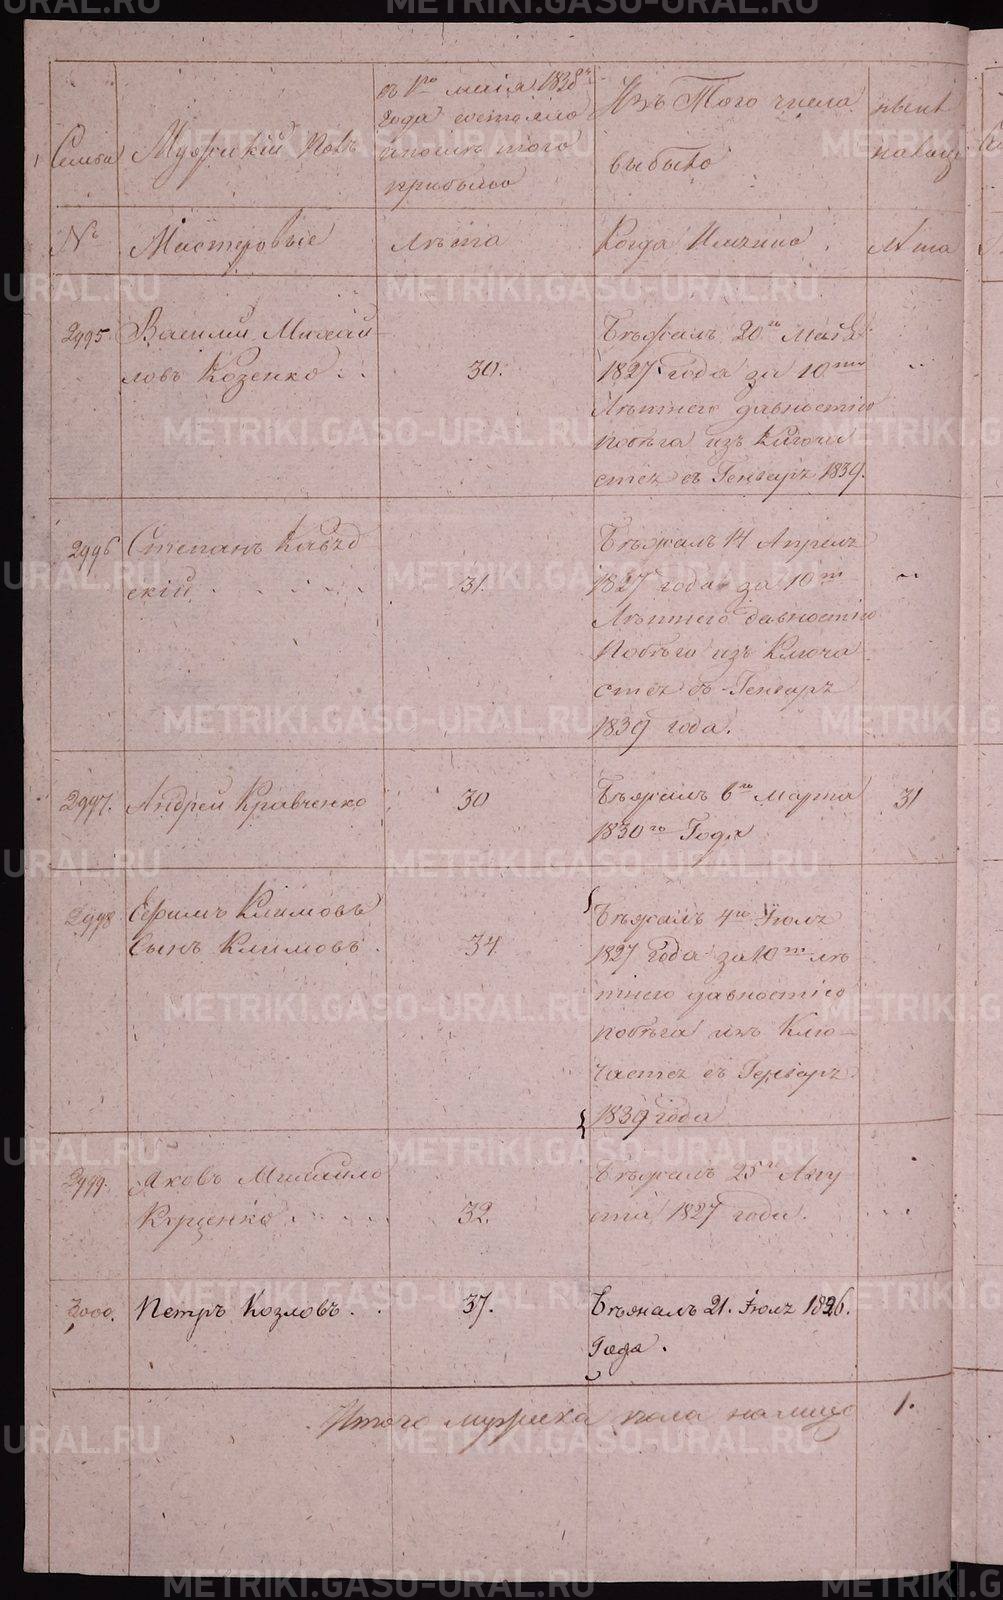 Семьи
Мужескій Полъ
съ 1го маія 1838го
года состояло
и после того
прибыло
Изъ Того числа
выбыло
ныне
налицо
№
Мастеровые
Лѣта
Когда Имянно
Лѣта
2995
Василий Михай
ловъ Козенко
30.
Бѣжалъ 20го Маія
1827 года за 10ти
Лѣтнею давностію
побѣга изъ
въ Генварѣ 1839.
2996
Степанъ
скій
31.
Бѣжалъ 14 Апрелѣ
1827 года за 10ти
Лѣтнею давностію
Побѣга изъ Ключа
въ Генварѣ
1839 года.
2997.
Андрей Кравченко
30
Бѣжалъ 6го Марта
1830го Года
31
2998
Ефимъ Климовъ
Сынъ Климовъ
34
Бѣжалъ 4го Июлѣ
1827 года за 10ти лѣ
тнею давностію
побѣга изъ Клю-
въ Генварѣ
1839 года
2999.
Яковъ Михайло
Куценко
32.
Бѣжалъ 25го Авгу
ста 1827 года.
3000.
Петръ Козловъ.
37.
Бѣжалъ 21. Июлѣ 1826.
Года.
Итого мужеска пола налицо
1.
METRIKI.GASO-URAL.RU